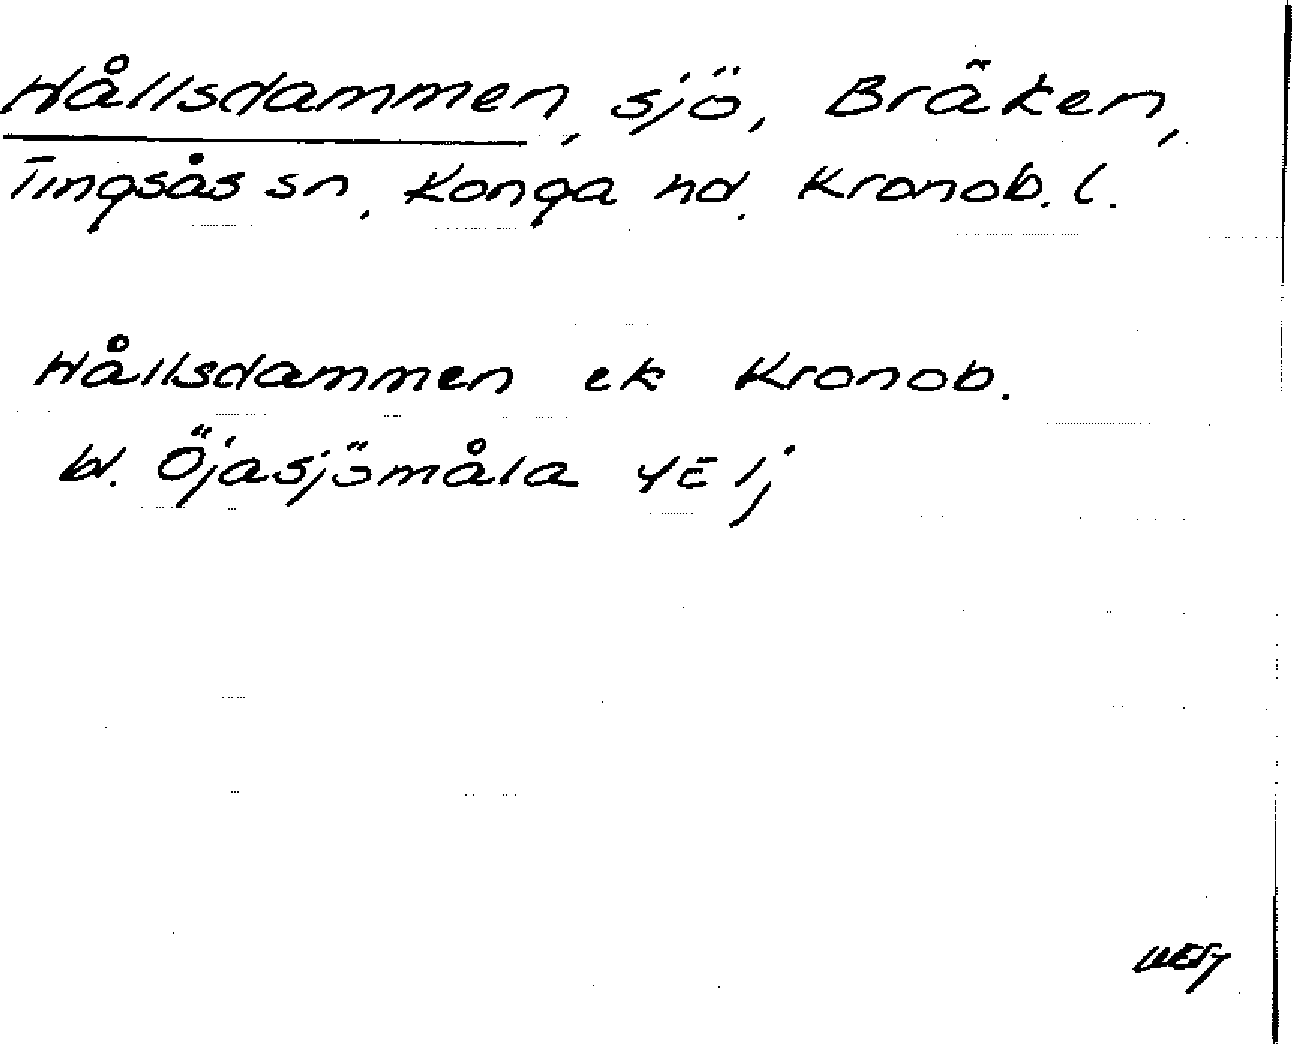 Hållsdammen, sjö, Bräken,
Tingsås sn, Konga hd, Kronob. l.
Hållsdammen ek Kronob.
bl. Öjasjömåla 4E 1j